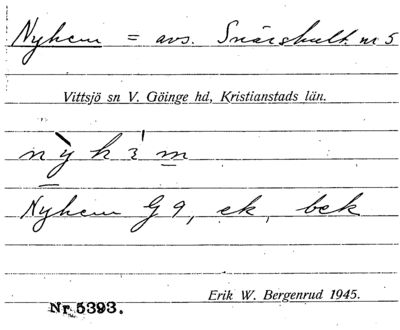 Nyhem = avs. Snärshult nr 5
Vittsjö sn V. Göinge hd, Kristianstads län.
Nyhem G 9, ek, bek
Erik W. Bergenrud 1945.
Nr. 5393.